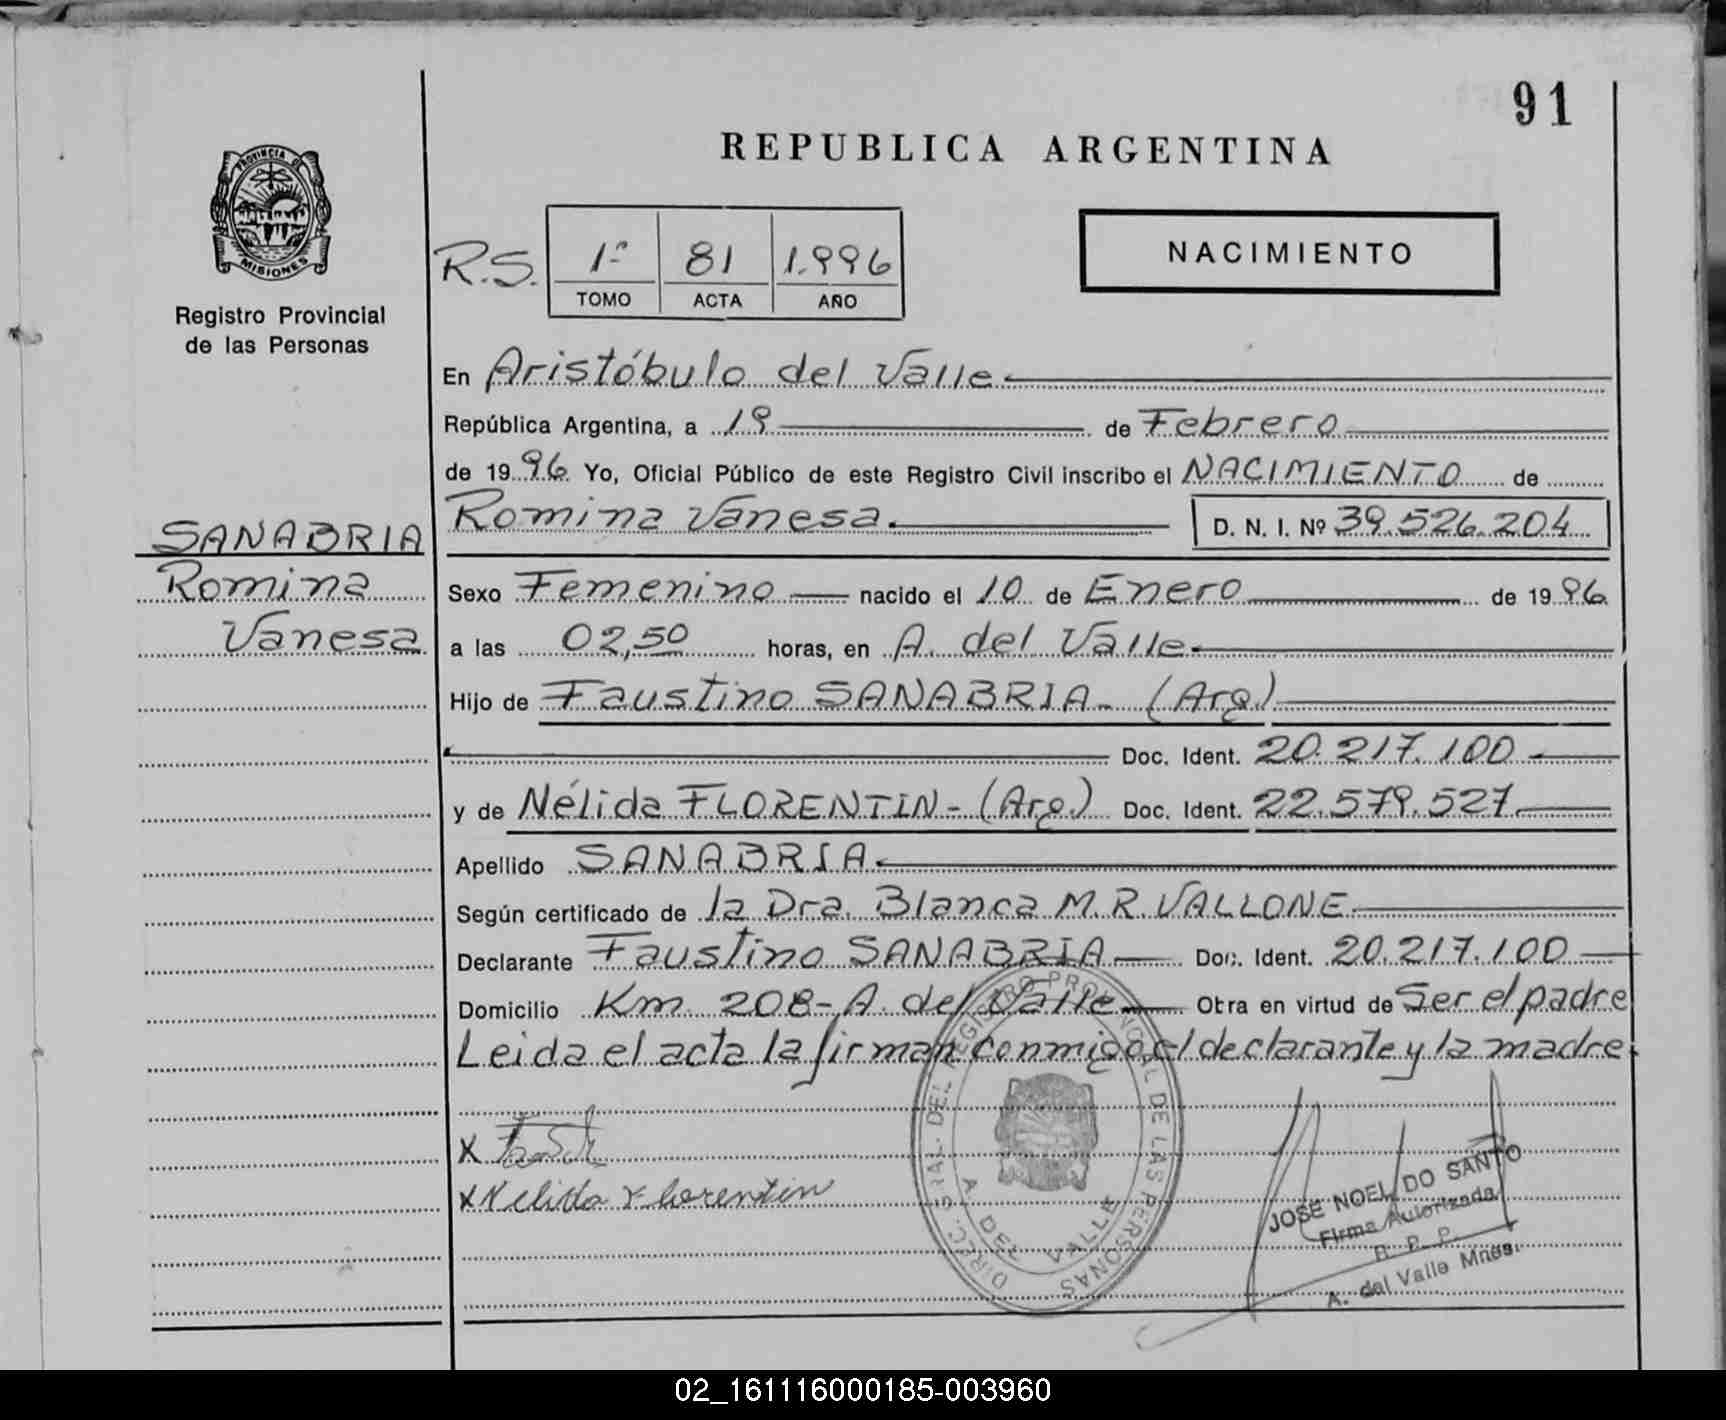 91
REPUBLICA ARGENTINA
PROVINCIA DE
MISIONES
Registro Provincial
de las Personas
R.S.
1º 81 1.996
TOMO ACTA AÑO
NACIMIENTO
En Aristóbulo del Valle
República Argentina, a 19 de Febrero
de 19 96 Yo, Oficial Público de este Registro Civil inscribo el NACIMIENTO de
Romina Vanesa. D. N. I. Nº 39.526.204
SANABRIA
Romina
Vanesa
Sexo Femenino nacido el 10 de Enero de 19 96
a las 02,50 horas, en A. del Valle
Hijo de Faustino SANABRIA - (Arg.)
Doc. Ident. 20.217.100
y de Nélida FLORENTIN - (Arg.) Doc. Ident. 22.579.527
Apellido SANABRIA
Según certificado de la Dra. Blanca M. R. VALLONE
Declarante Faustino SANABRIA Doc. Ident. 20.217.100
Domicilio Km. 208 - A. del Valle Otra en virtud de Ser el padre
Leida el acta la firman conmigo, el declarante y la madre.
X
X Nelida Florentin
DIREC. GRAL. DEL REGISTRO PROVINCIAL DE LAS PERSONAS
A. DEL VALLE
JOSE NOEL DO SANTO
Firma Autorizada
R. P. P.
A. del Valle Mnes.
02_161116000185-003960